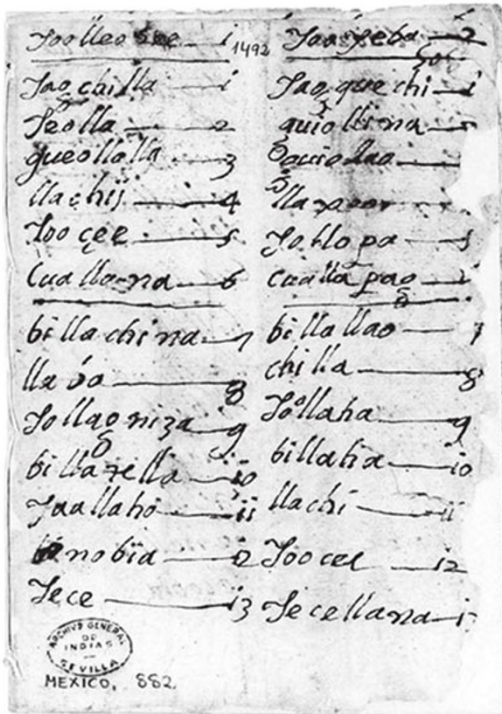 Yoolleo zee — i
1492
yao chilla — i
yeolla — 2
gueollolla — 3
llachij — 4
yooçee — 5
Cuallana — 6
billachina — 7
llaba — 8
yollaoniza — 9
billazella — io
yuallaho — ii
nobia — i2
yece — i3
yooxeba — 2
yao, quechi — i
quiollina
yoblopa — 5
cualla pao
billallao — 7
chilla — 8
yoollaha — 9
billaha — io
llachi — ii
yoocee — i2
yecellana — i
ARCHIVO GENERAL
DE
INDIAS
SEVILLA
MEXICO, 882